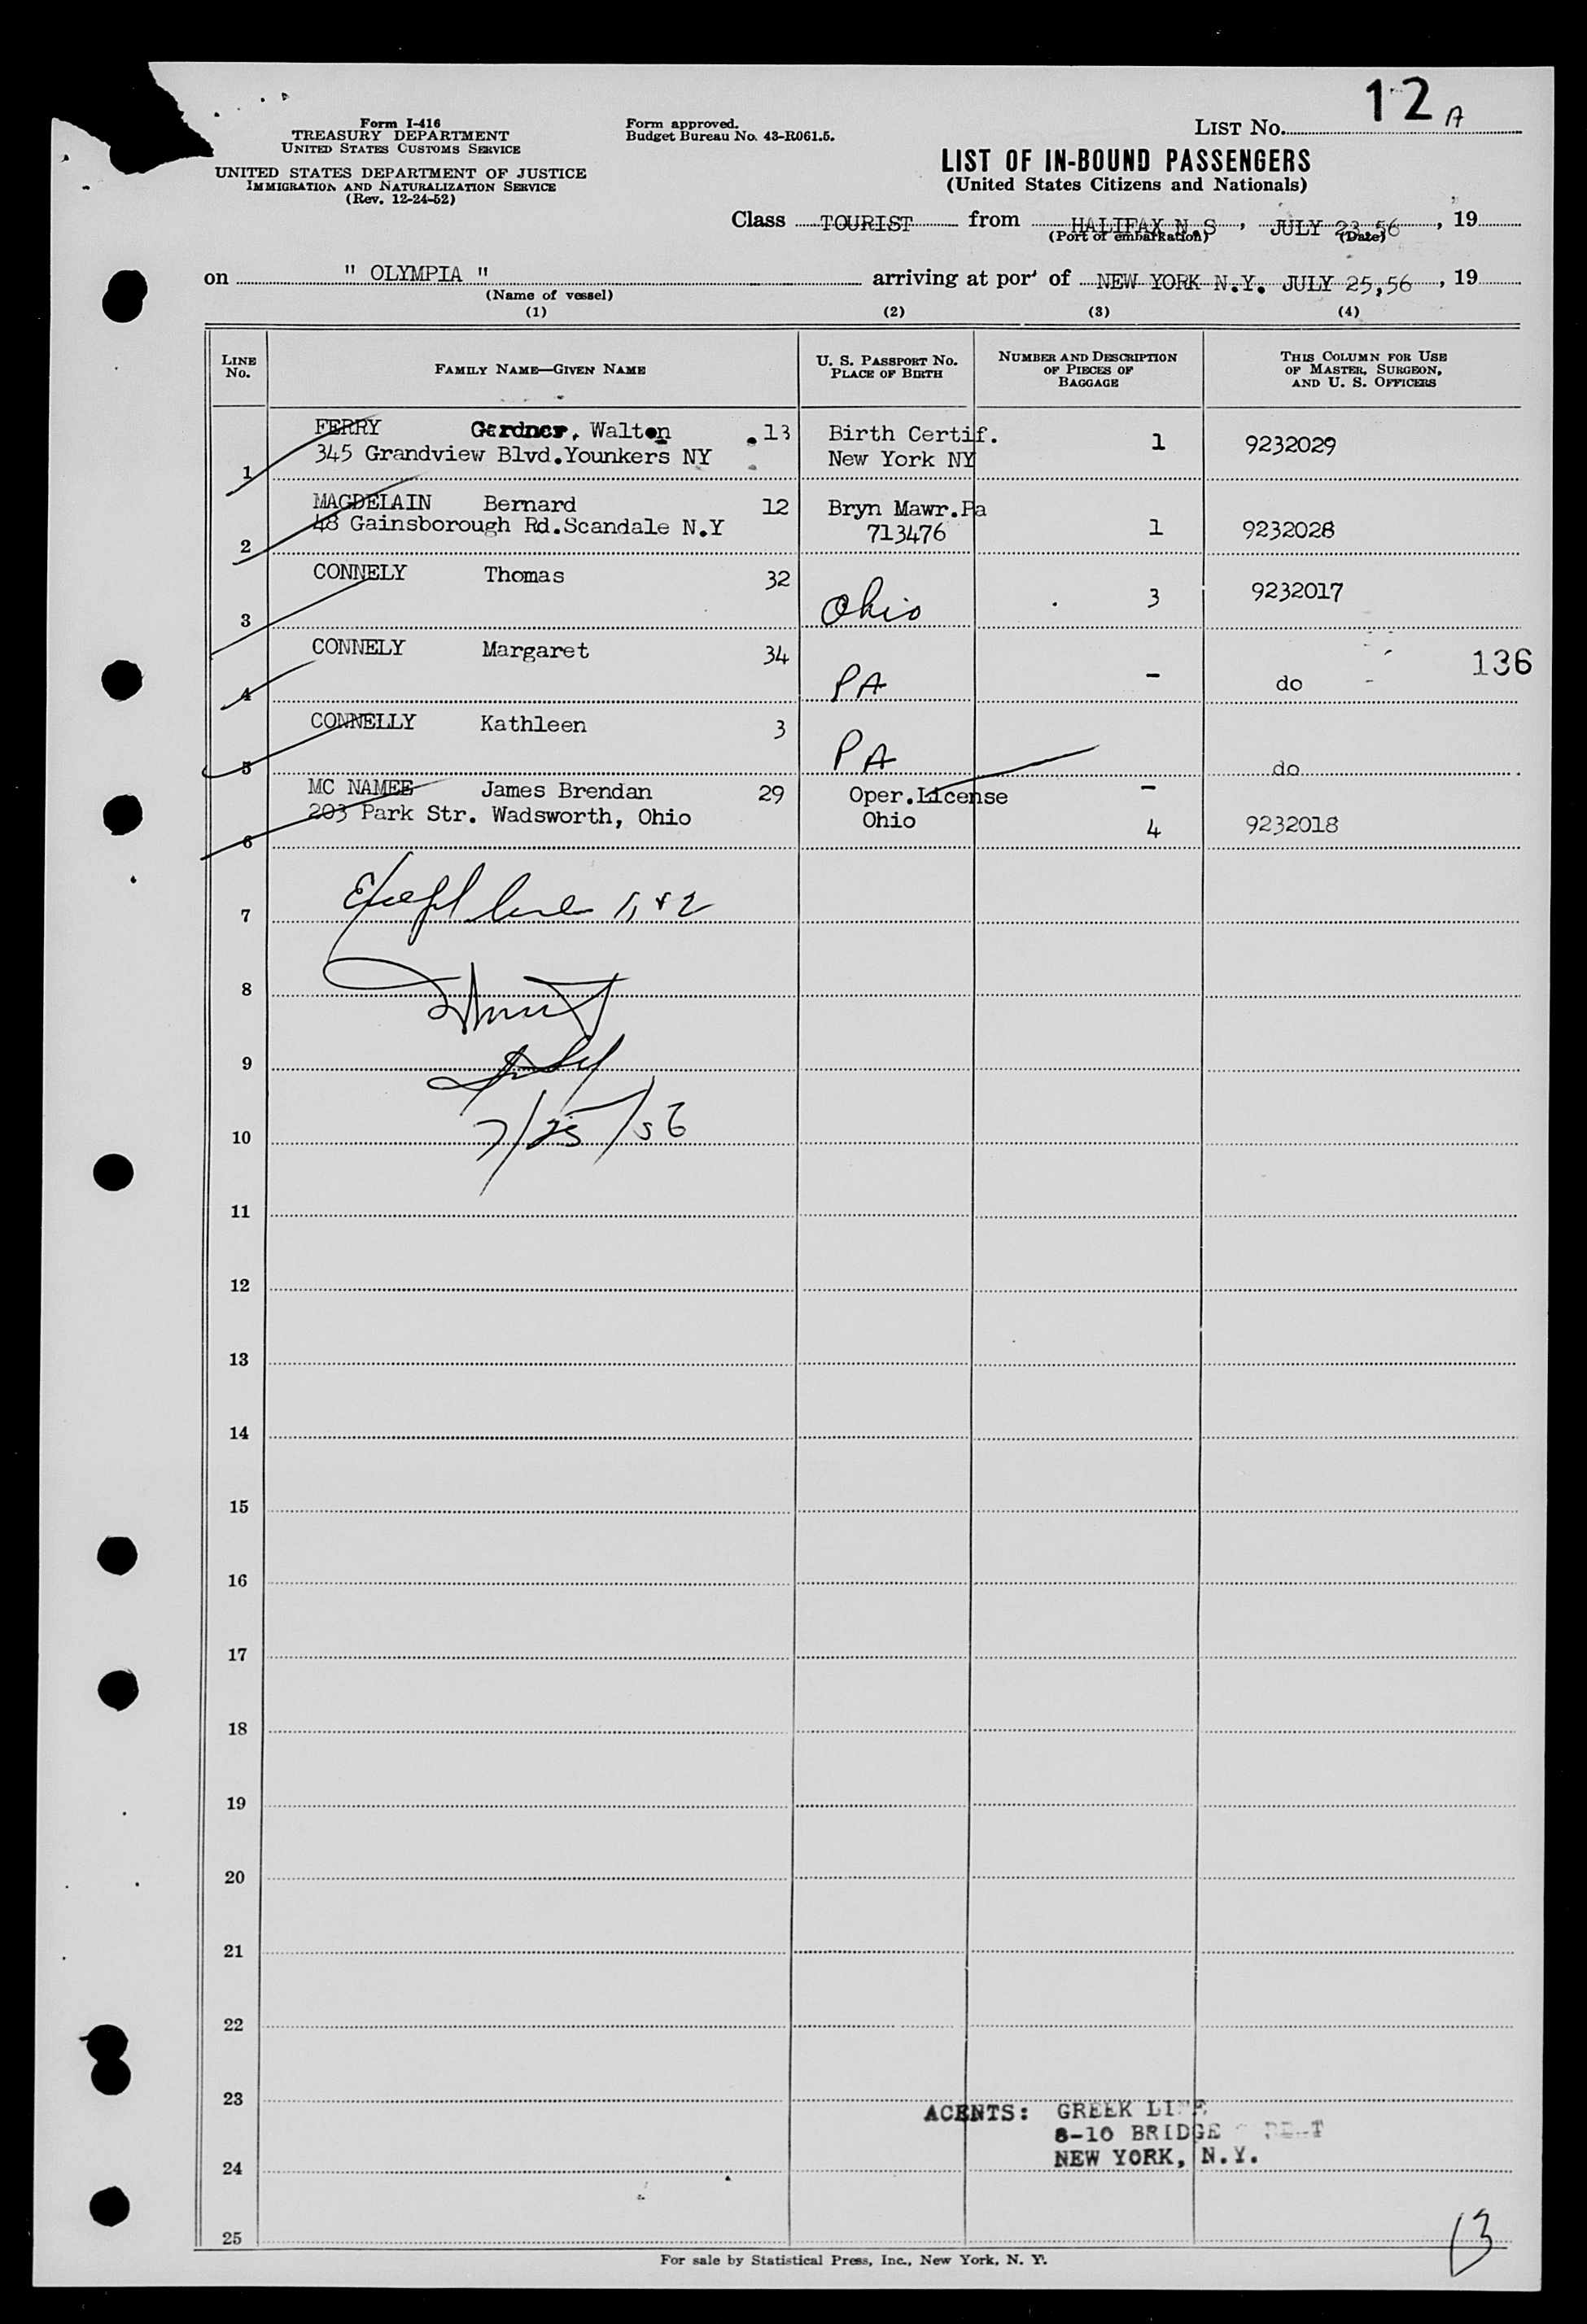 12 A
Form I-416
TREASURY DEPARTMENT
UNITED STATES CUSTOMS SERVICE
UNITED STATES DEPARTMENT OF JUSTICE
IMMIGRATION AND NATURALIZATION SERVICE
(Rev. 12-24-52)
Form approved.
Budget Bureau No. 43-R061.5.
LIST No.
LIST OF IN-BOUND PASSENGERS
(United States Citizens and Nationals)
Class TOURIST from HALIFAX N.S , JULY 23 56 , 19
(Port of embarkation) (Date)
on " OLYMPIA " arriving at port of NEW YORK N.Y. JULY 25,56 , 19
(Name of vessel)
(1) (2) (3) (4)
LINE No. FAMILY NAME—GIVEN NAME U. S. PASSPORT No. PLACE OF BIRTH NUMBER AND DESCRIPTION OF PIECES OF BAGGAGE THIS COLUMN FOR USE OF MASTER, SURGEON, AND U. S. OFFICERS
FERRY Gardner, Walton 13 Birth Certif. 1 9232029
1 345 Grandview Blvd.Younkers NY New York NY
MAGDELAIN Bernard 12 Bryn Mawr.Pa
2 48 Gainsborough Rd.Scandale N.Y 713476 1 9232028
3 CONNELY Thomas 32 Ohio 3 9232017
4 CONNELY Margaret 34 PA - do 136
5 CONNELLY Kathleen 3 PA do
MC NAMEE James Brendan 29 Oper.License -
6 203 Park Str. Wadsworth, Ohio Ohio 4 9232018
7 Except line 1, & 2
8
9
10 7/25/56
11
12
13
14
15
16
17
18
19
20
21
22
23
AGENTS: GREEK LINE
8-10 BRIDGE
NEW YORK, N.Y.
24
25
13
For sale by Statistical Press, Inc., New York, N. Y.